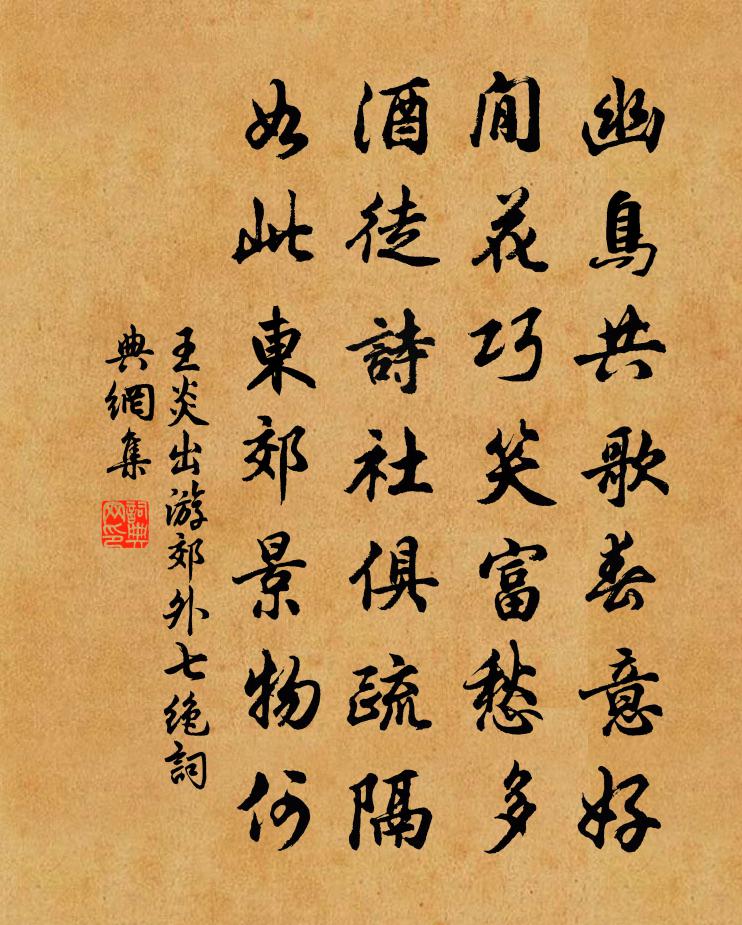 幽鳥共歌春意好
閒花巧笑富愁多
酒徒詩社俱疏隔
如此東郊景物何
王炎出游郊外七絶詞
典網集
詞典網印